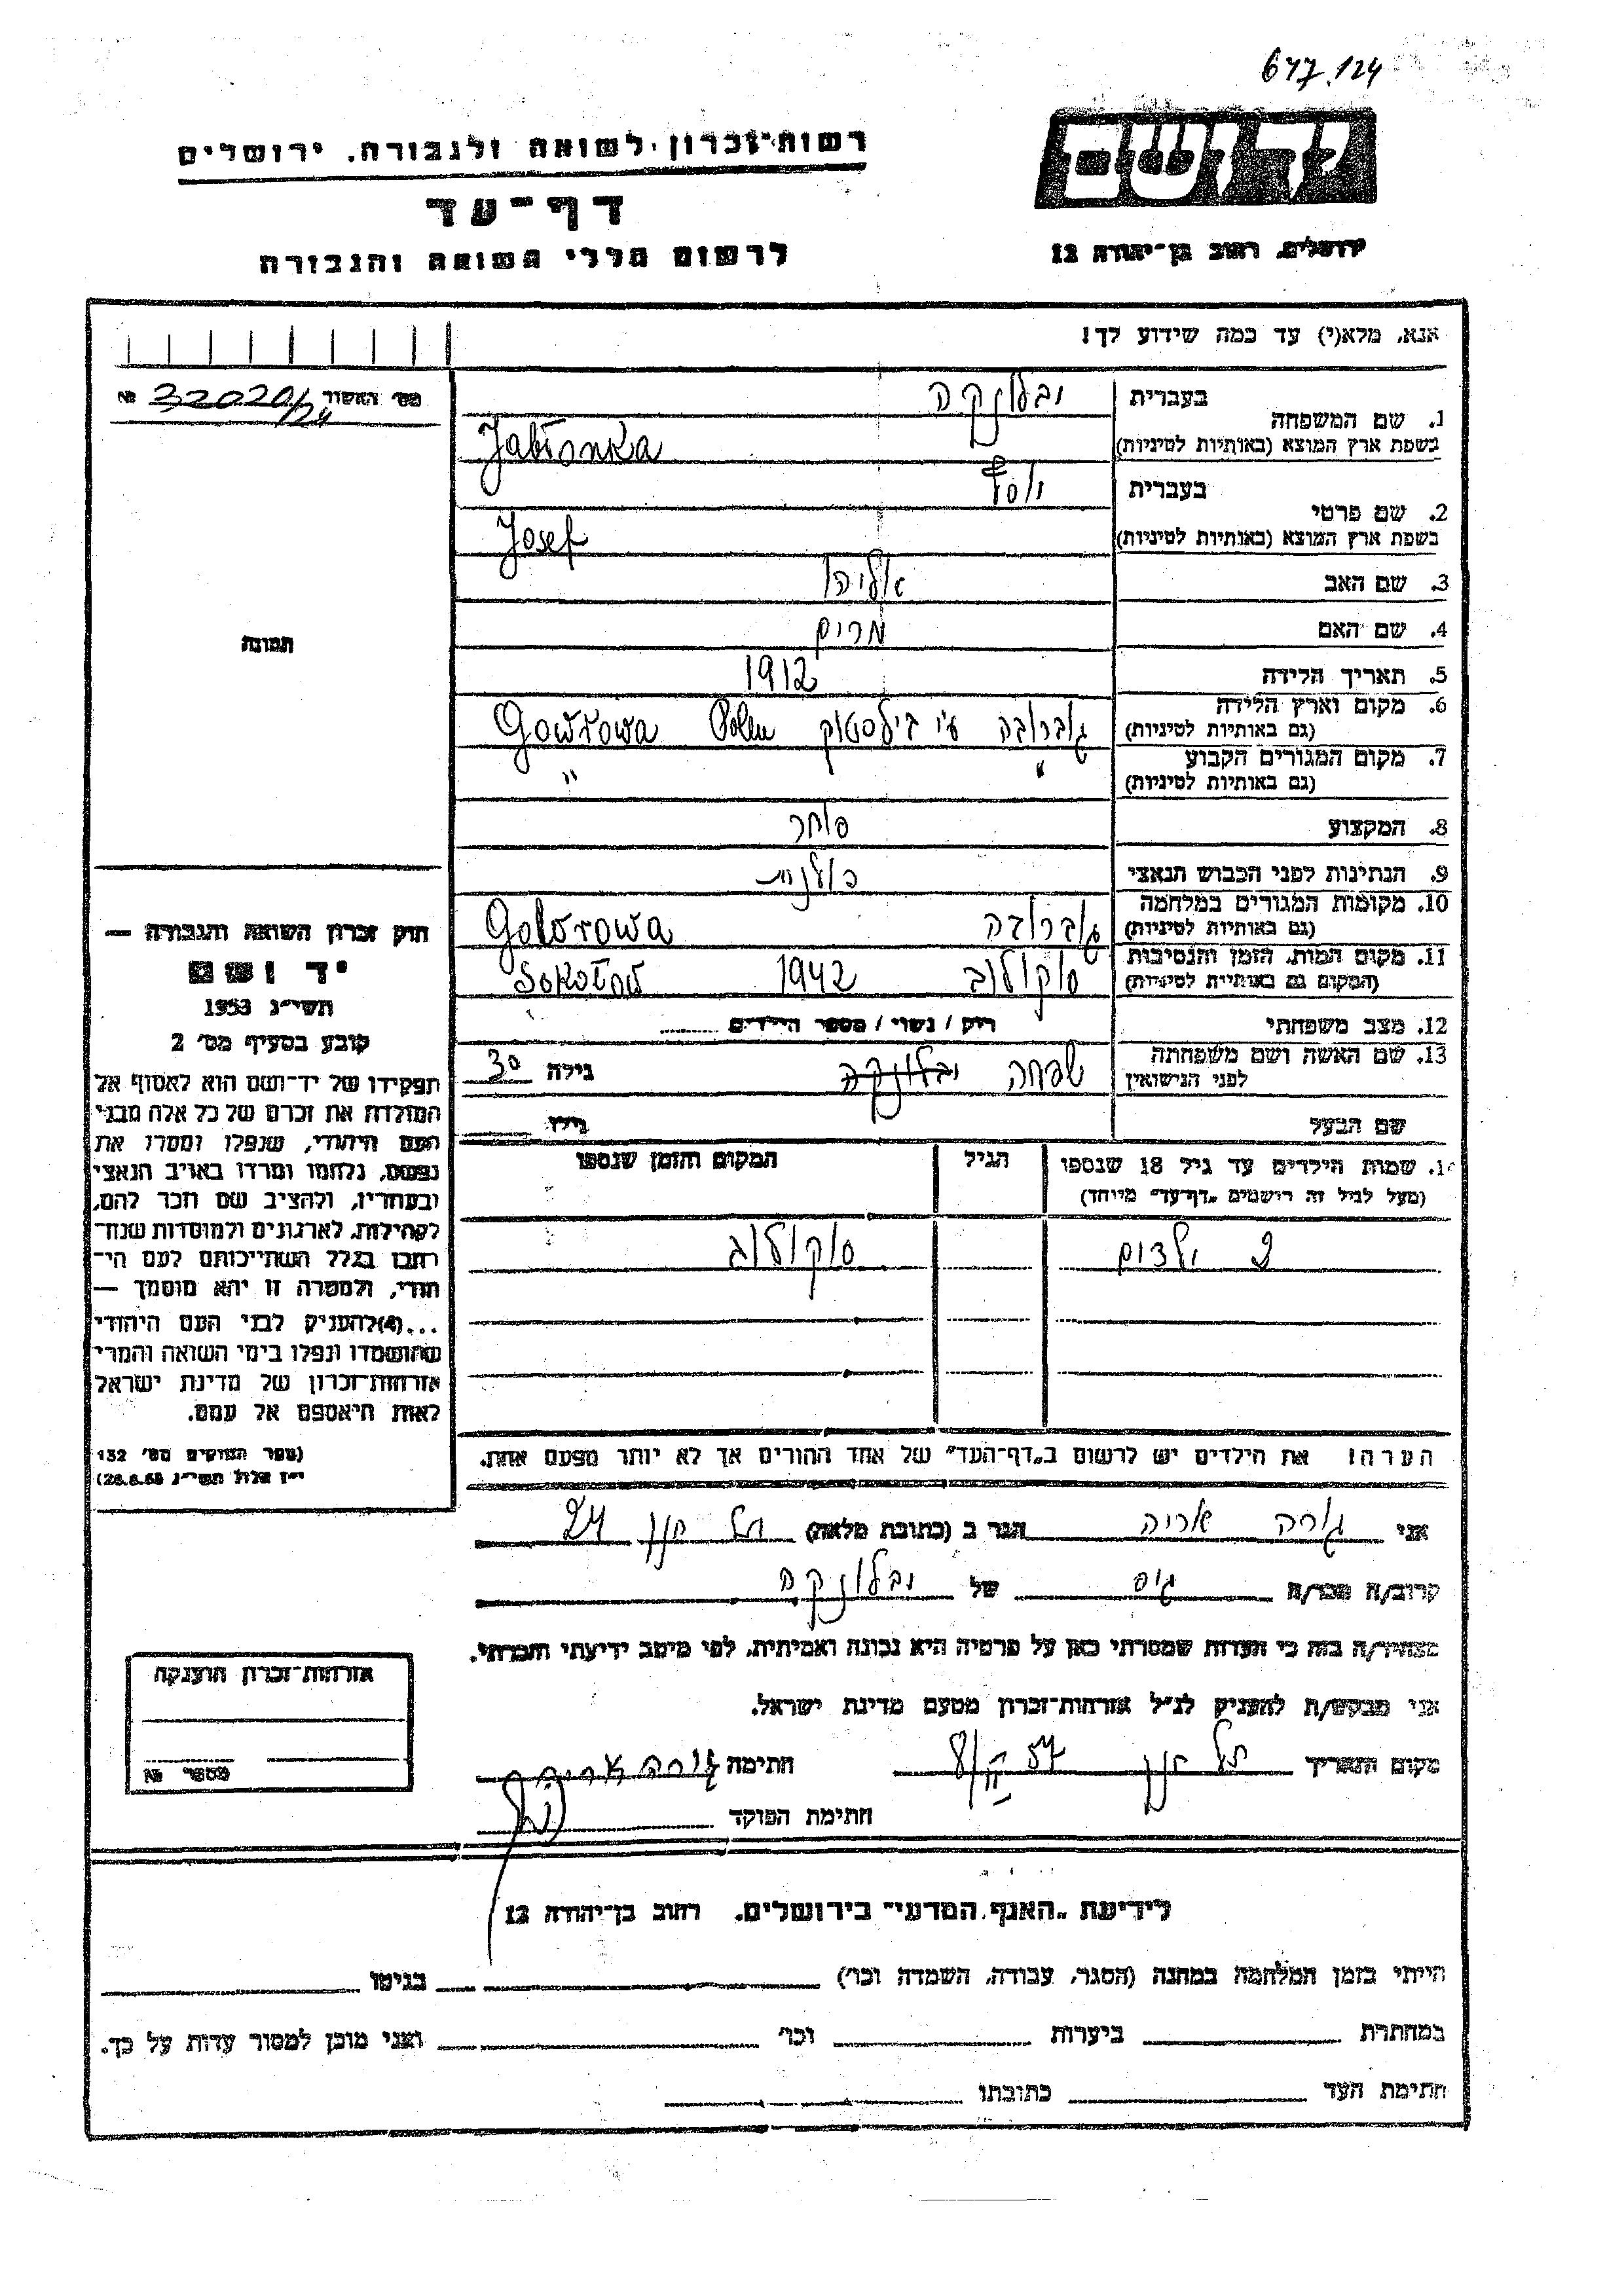 677.124
יד ושם
ירושלים, רחוב בן־יהודה 12
רשות־זכרון לשואה ולגבורה, ירושלים
דף־עד
לרשום חללי השואה והגבורה
אנא, מלא(י) עד כמה שידוע לך!
מס' האשור 32020/24 №
1. שם המשפחה
בעברית יבלונקה
בשפת ארץ המוצא (באותיות לטיניות) Jabłonka
2. שם פרטי
בעברית יוסף
בשפת ארץ המוצא (באותיות לטיניות) Josef
3. שם האב אליהו
4. שם האם מרים
תמונה
5. תאריך הלידה 1912
6. מקום וארץ הלידה (גם באותיות לטיניות) גוברובה ע"י ביאלסטוק Polen Gowrowa
7. מקום המגורים הקבוע (גם באותיות לטיניות) " "
8. המקצוע סוחר
9. הנתינות לפני הכבוש הנאצי פולנית
10. מקומות המגורים במלחמה (גם באותיות לטיניות) גוברובה Goworowa
11. מקום המות, הזמן והנסיבות (המקום גם באותיות לטיניות) סוקולוב 1942 Sokołow
12. מצב משפחתי רווק / נשוי / מספר הילדים
13. שם האשה ושם משפחתה לפני הנישואין שפחה יבלונקה גילה 30
שם הבעל גילו
14. שמות הילדים עד גיל 18 שנספו הגיל המקום והזמן שנספו
(מעל לגיל זה רושמים "דף־עד" מיוחד)
ילדים סוקולוב
הערה! את הילדים יש לרשום ב"דף־העד" של אחד ההורים אך לא יותר מפעם אחת.
חוק זכרון השואה והגבורה —
יד ושם
תשי"ג 1953
קובע בסעיף מס' 2
תפקידו של יד־ושם הוא לאסוף אל
המולדת את זכרם של כל אלה מבני
העם היהודי, שנפלו ומסרו את
נפשם, נלחמו ומרדו באויב הנאצי
ובעוזריו, ולהציב שם וזכר להם,
לקהילות, לארגונים ולמוסדות שנח־
רבו בגלל השתייכותם לעם הי־
הודי, ולמטרה זו יהא מוסמך —
...(4) להעניק לבני העם היהודי
שהושמדו ונפלו בימי השואה והמרי
אזרחות־זכרון של מדינת ישראל
לאות היאספם אל עמם.
(ספר החוקים מס' 132
י"ז אלול תשי"ג 28.8.53)
אני גורה אריה הגר ב (כתובת מלאה) תל חנן 24
קרוב/ה מכר/ה גיס של יבלונקה
מצהיר/ה בזה כי העדות שמסרתי כאן על פרטיה היא נכונה ואמיתית, לפי מיטב ידיעתי והכרתי.
אני מבקש/ת להעניק לנ"ל אזרחות־זכרון מטעם מדינת ישראל.
מקום ותאריך תל חנן חתימה גורה אריה
חתימת הפוקד
אזרחות־זכרון הוענקה
מספר №
לידיעת "האגף המדעי" בירושלים, רחוב בן־יהודה 12
הייתי בזמן המלחמה במחנה (הסגר, עבודה, השמדה וכו') בגיטו
במחתרת ביערות וכו' ואני מוכן למסור עדות על כך.
חתימת העד כתובתו